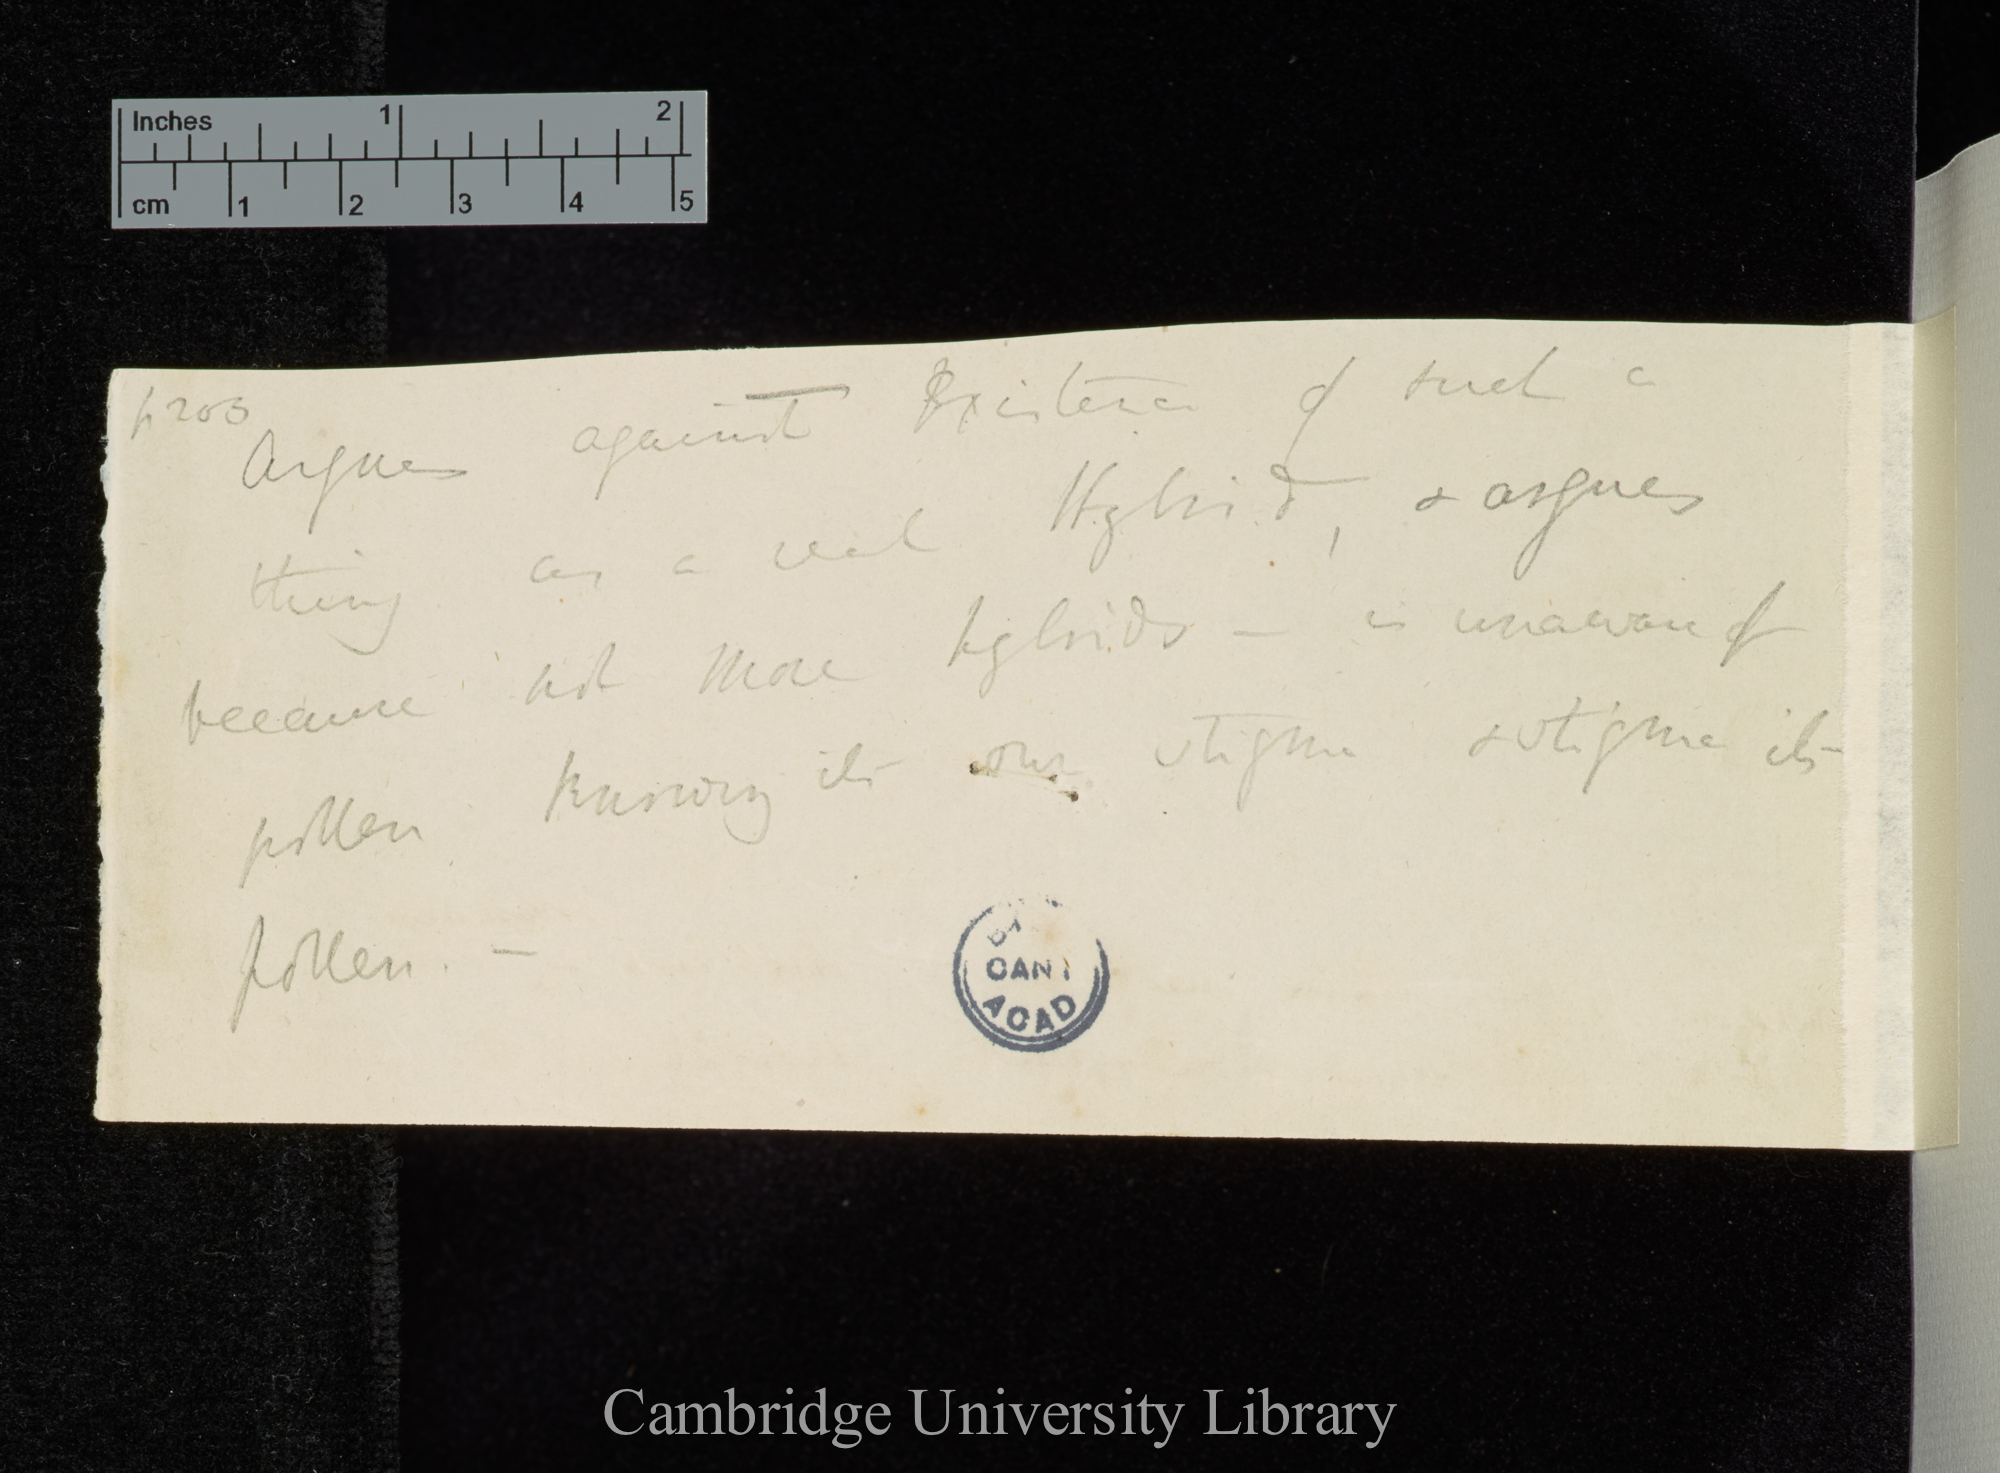 Inches 1 2
cm 1 2 3 4 5
p 203
Argues against Existence of such a
thing as a real Hybrid, & argues
because not more hybrids — is unaware of
pollen knowing its own stigma & stigma its
pollen. —
CANT
ACAD
Cambridge University Library